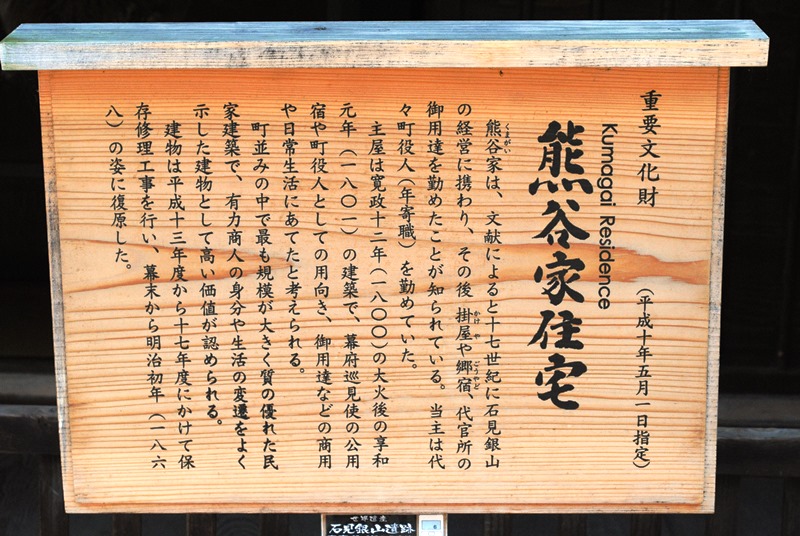 重要文化財
(平成十年五月一日指定)
Kumagai Residence
熊谷家住宅
熊谷家は、文献によると十七世紀に石見銀山
くまがい
の経営に携わり、その後、掛屋や郷宿、代官所の
かけや
ごうやど
御用達を勤めたことが知られている。当主は代
々町役人(年寄職)を勤めていた。
主屋は寛政十二年(一八〇〇)の大火後の享和
元年(一八〇一)の建築で、幕府巡見使の公用
宿や町役人としての用向き、御用達などの商用
や日常生活にあてたと考えられる。
町並みの中で最も規模が大きく質の優れた民
家建築で、有力商人の身分や生活の変遷をよく
示した建物として高い価値が認められる。
建物は平成十三年度から十七年度にかけて保
存修理工事を行い、幕末から明治初年(一八六
八)の姿に復原した。
世界遺産
石見銀山遺跡